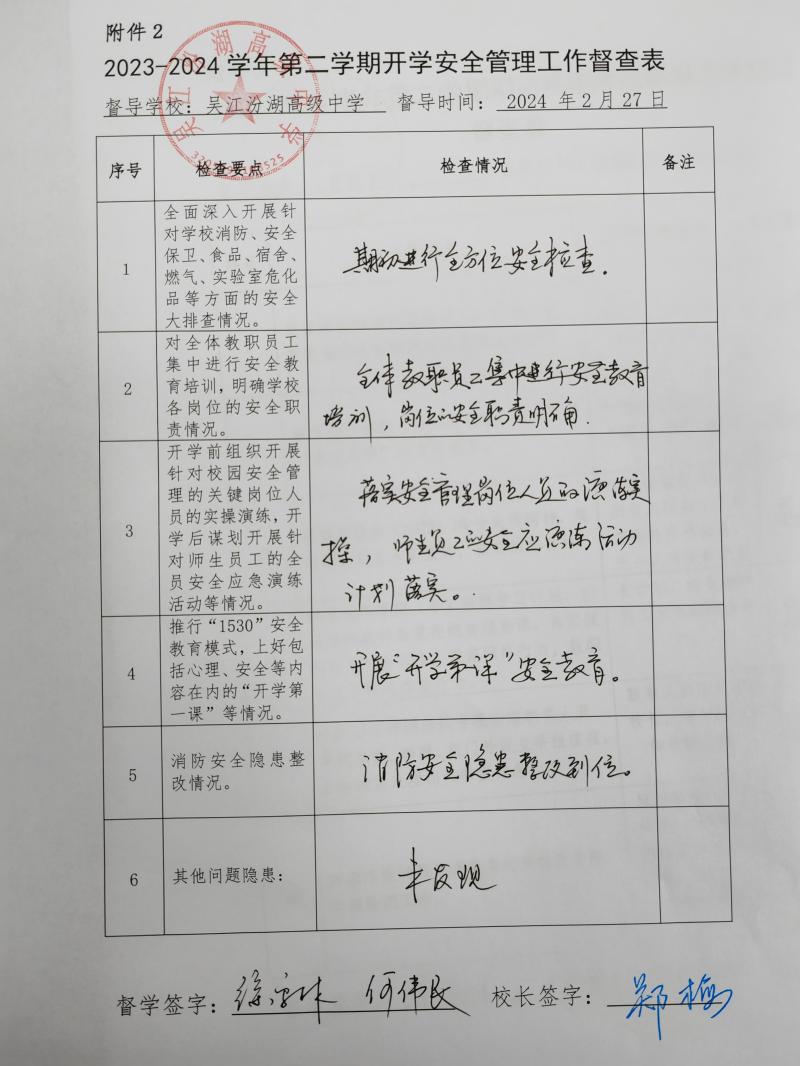 附件2
2023-2024学年第二学期开学安全管理工作督查表
督导学校：吴江汾湖高级中学 督导时间：2024 年 2 月 27 日
序号 检查要点 检查情况 备注
1
全面深入开展针
对学校消防、安全
保卫、食品、宿舍、
燃气、实验室危化
品等方面的安全
大排查情况。
期初进行全方位安全检查.
2
对全体教职员工
集中进行安全教
育培训，明确学校
各岗位的安全职
责情况。
全体教职员工集中进行安全教育
培训，岗位的安全职责明确.
3
开学前组织开展
针对校园安全管
理的关键岗位人
员的实操演练，开
学后谋划开展针
对师生员工的全
员安全应急演练
活动等情况。
落实安全管理岗位人员的演练实
操，师生员工的安全应急演练活动
计划落实。
4
推行“1530”安全
教育模式，上好包
括心理、安全等内
容在内的“开学第
一课”等情况。
开展“开学第一课”安全教育。
5
消防安全隐患整
改情况。
消防安全隐患整改到位。
6
其他问题隐患：
未发现
督学签字： 何伟民 校长签字：郑梅
吴江汾湖高级中学